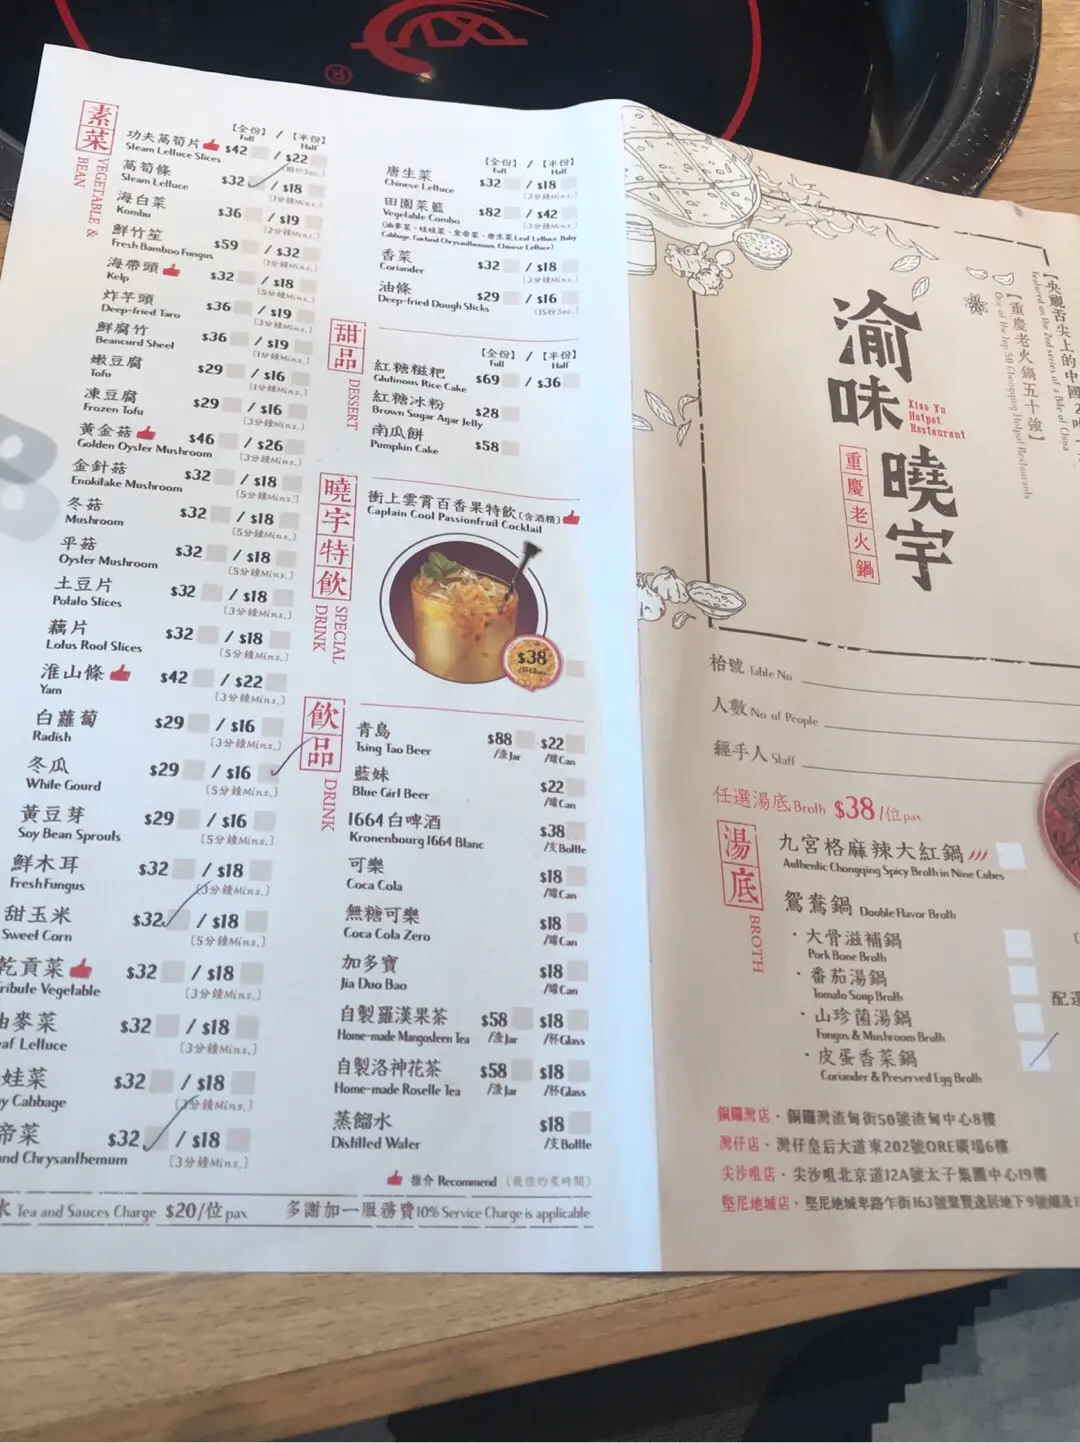 ®
素菜
VEGETABLE & BEAN
【全份】 / 【半份】
Full Half
功夫萵筍片 $42 / $22
Steam Lettuce Slices
萵筍條 $32 / $18
Steam Lettuce (1分鐘Mins.)
海白菜 $36 / $19
Kombu (2分鐘Mins.)
鮮竹笙 $59 / $32
Fresh Bamboo Fungus (1分鐘Mins.)
海帶頭 $32 / $18
Kelp (5分鐘Mins.)
炸芋頭 $36 / $19
Deep-fried Taro (3分鐘Mins.)
鮮腐竹 $36 / $19
Beancurd Sheet (1分鐘Mins.)
嫩豆腐 $29 / $16
Tofu (1分鐘Mins.)
凍豆腐 $29 / $16
Frozen Tofu (3分鐘Mins.)
黃金菇 $46 / $26
Golden Oyster Mushroom (3分鐘Mins.)
金針菇 $32 / $18
Enokitake Mushroom (5分鐘Mins.)
冬菇 $32 / $18
Mushroom (5分鐘Mins.)
平菇 $32 / $18
Oyster Mushroom (5分鐘Mins.)
土豆片 $32 / $18
Potato Slices (3分鐘Mins.)
藕片 $32 / $18
Lotus Root Slices (5分鐘Mins.)
淮山條 $42 / $22
Yam (3分鐘Mins.)
白蘿蔔 $29 / $16
Radish (3分鐘Mins.)
冬瓜 $29 / $16
White Gourd (5分鐘Mins.)
黃豆芽 $29 / $16
Soy Bean Sprouts (5分鐘Mins.)
鮮木耳 $32 / $18
Fresh Fungus (3分鐘Mins.)
甜玉米 $32 / $18
Sweet Corn (5分鐘Mins.)
乾貢菜 $32 / $18
Tribute Vegetable (3分鐘Mins.)
油麥菜 $32 / $18
eaf Lettuce (3分鐘Mins.)
娃菜 $32 / $18
y Cabbage (3分鐘Mins.)
帝菜 $32 / $18
nd Chrysanthemum (3分鐘Mins.)
【全份】 / 【半份】
Full Half
唐生菜 $32 / $18
Chinese Lettuce (3分鐘Mins.)
田園菜籃 $82 / $42
Vegetable Combo (3分鐘Mins.)
(油麥菜、娃娃菜、皇帝菜、唐生菜 Leaf Lettuce, Baby
Cabbage, Garland Chrysanthemum, Chinese Lettuce)
香菜 $32 / $18
Coriander (3分鐘Mins.)
油條 $29 / $16
Deep-fried Dough Sticks (15秒Sec.)
甜品
DESSERT
【全份】 / 【半份】
Full Half
紅糖糍粑 $69 / $36
Glutinous Rice Cake
紅糖冰粉 $28
Brown Sugar Agar Jelly
南瓜餅 $58
Pumpkin Cake
曉宇特飲
SPECIAL DRINK
衝上雲霄百香果特飲(含酒精)
Captain Cool Passionfruit Cocktail
$38
飲品
DRINK
青島 $88 $22
Tsing Tao Beer /渣Jar /罐Can
藍妹 $22
Blue Girl Beer /罐Can
1664白啤酒 $38
Kronenbourg 1664 Blanc /支Bottle
可樂 $18
Coca Cola /罐Can
無糖可樂 $18
Coca Cola Zero /罐Can
加多寶 $18
Jia Duo Bao /罐Can
自製羅漢果茶 $58 $18
Home-made Mangosteen Tea /渣Jar /杯Glass
自製洛神花茶 $58 $18
Home-made Roselle Tea /渣Jar /杯Glass
蒸餾水 $18
Distilled Water /支Bottle
推介 Recommend (最佳灼煮時間)
水 Tea and Sauces Charge $20/位pax 多謝加一服務費10% Service Charge is applicable
【央視舌尖上的中國
Featured on the 2nd series of a Bite of China
【重慶老火鍋五十強】
One of the top 50 Chongqing Hotpot Restaurants
渝味曉宇
Xiao Yu
Hotpot
Restaurant
重慶老火鍋
枱號 Table No
人數 No of People
經手人 Staff
任選湯底 Broth $38/位pax
湯底
BROTH
九宮格麻辣大紅鍋
Authentic Chongqing Spicy Broth in Nine Cubes
鴛鴦鍋 Double Flavor Broth
・大骨滋補鍋
Pork Bone Broth
・番茄湯鍋
Tomato Soup Broth
・山珍菌湯鍋
Fungus & Mushroom Broth
・皮蛋香菜鍋
Coriander & Preserved Egg Broth
配
銅鑼灣店・銅鑼灣渣甸街50號渣甸中心8樓
灣仔店・灣仔皇后大道東202號ORE廣場6樓
尖沙咀店・尖沙咀北京道12A號太子集團中心19樓
堅尼地城店・堅尼地城卑路乍街163號聚賢逸居地下9號舖及1